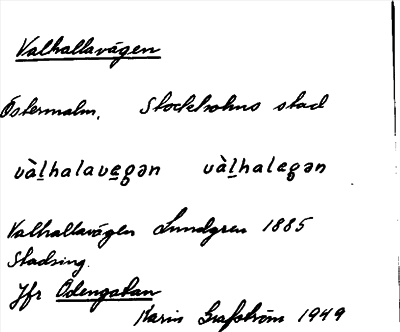 Valhallavägen
Östermalm, Stockholms stad
vàl̲halave̲gən vàl̲halegən
Valhallavägen Lundgren 1885
Stadsing.
Jfr Odengatan
Karin Grafström 1949